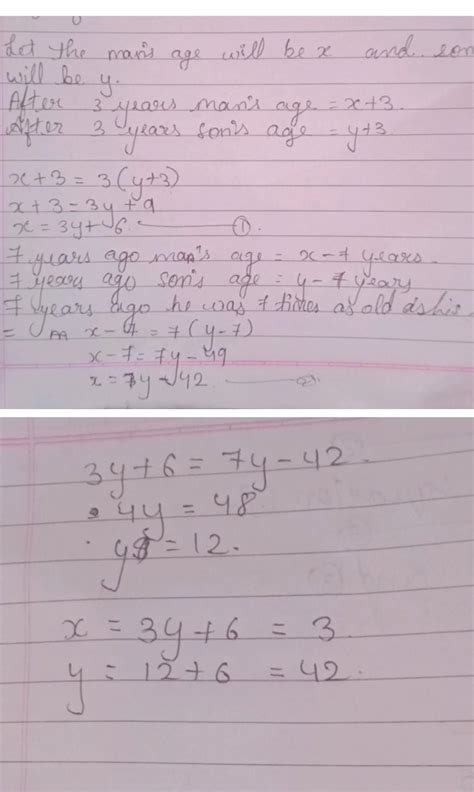 Let the man's age will be x and son
will be y.
After 3 years man's age = x+3.
After 3 years son's age = y+3.
x+3 = 3(y+3)
x+3 = 3y+9
x = 3y+6 ①.
7 years ago man's age = x-7 years.
7 years ago son's age = y-7 years
7 years ago he was 7 times as old as his
= x-7 = 7(y-7)
x-7 = 7y-49
x = 7y-42 ②
3y+6 = 7y-42.
4y = 48
y = 12.
x = 3y+6 = 3.
y = 12+6 = 42.